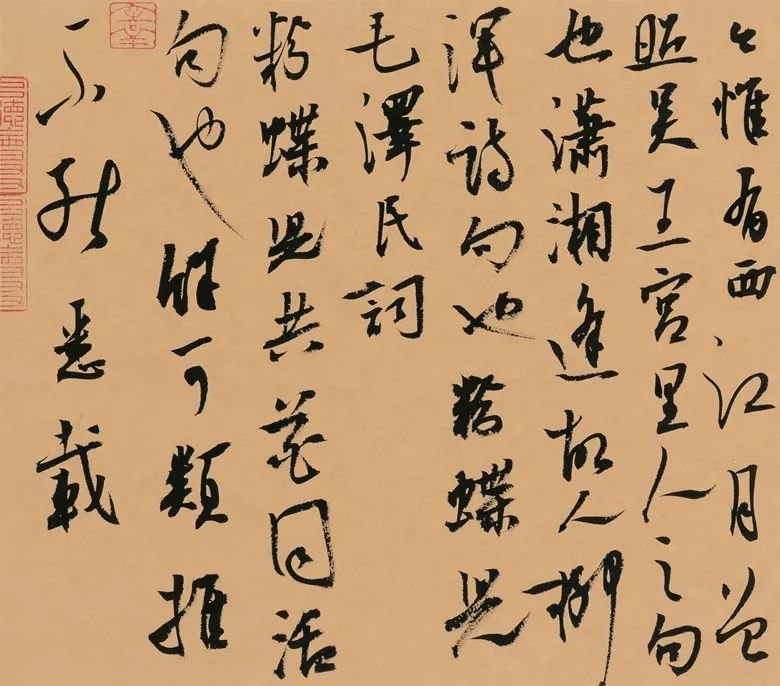 今惟有西江月曾
昭吳王宮里人之句
也瀟湘逢故人柳
渾詩句也粉蝶兒
毛澤民詞
粉蝶兒共花同活
句也餘可類推
一不能悉載